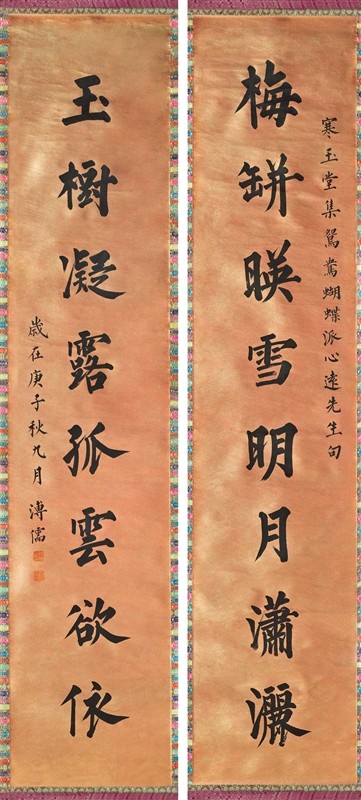 寒玉堂集鴛鴦蝴蝶派心遠先生句
梅缾暎雪明月瀟灑
玉樹凝露孤雲欲依
歲在庚子秋九月 溥儒